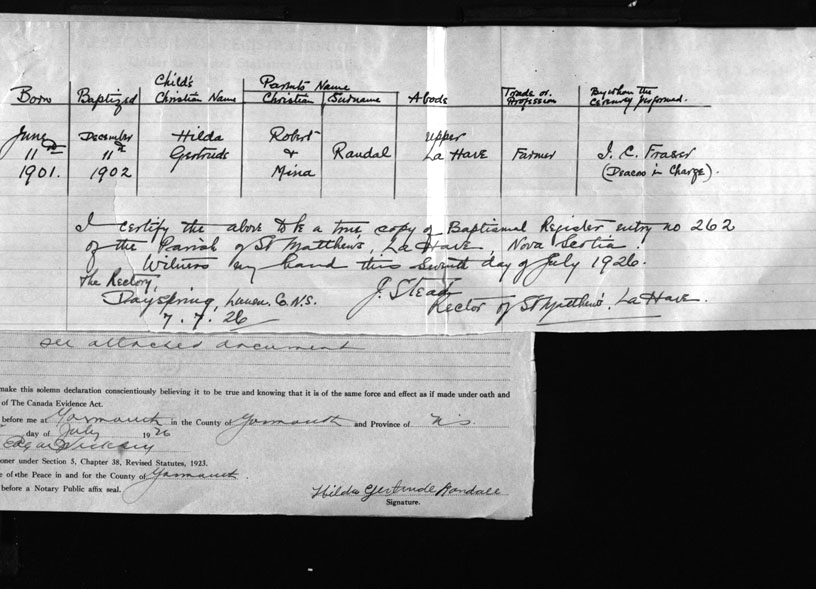 Child's Parents Name Trade or By whom the
Born Baptized Christian Name Christian Surname Abode Profession ceremony performed.
June December Hilda Robert Upper
11th 11th Gertrude & Randal La Have Farmer I. C. Fraser
1901. 1902 Mina (Deacon in Charge).
I certify the above to be a true copy of Baptismal Register entry no 262
of the Parish of St Matthew's, La Have, Nova Scotia.
Witness my hand this seventh day of July 1926.
The Rectory, J. Stead
Dayspring, Lunen. Co. N.S. Rector of St Matthew's, La Have.
7. 7. 26
see attached document
make this solemn declaration conscientiously believing it to be true and knowing that it is of the same force and effect as if made under oath and
of The Canada Evidence Act.
before me at Yarmouth in the County of Yarmouth and Province of N.S.
day of July 1926
Edgar
oner under Section 5, Chapter 38, Revised Statutes, 1923.
e of the Peace in and for the County of Yarmouth.
before a Notary Public affix seal.
Hilda Gertrude Randall
Signature.